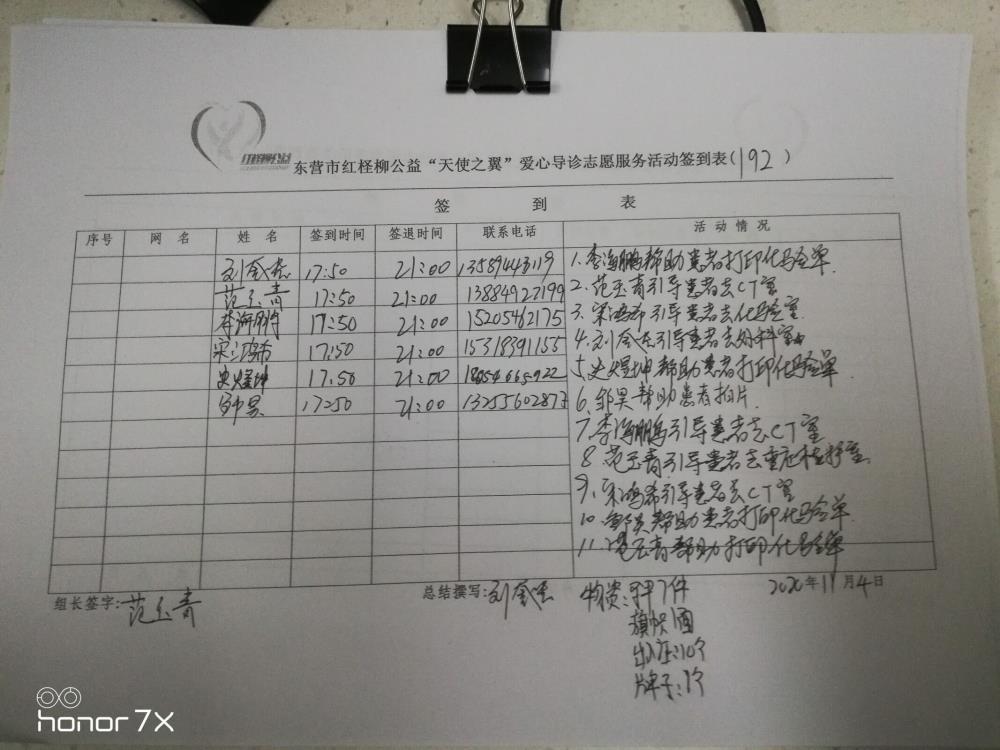 红柽柳公益
东营市红柽柳公益“天使之翼”爱心导诊志愿服务活动签到表(192)
签 到 表
序号 网 名 姓 名 签到时间 签退时间 联系电话 活 动 情 况
17:50 21:00 13589443119
范玉青 17:50 21:00 13884927199
李海鹏 17:50 21:00 15205462175
宋鸿希 17:50 21:00 15318391155
史煜坤 17:50 21:00
邹昊 17:50 21:00 13255602873
1.李海鹏帮助患者打印化验单
2.范玉青引导患者去CT室
3.宋鸿希引导患者去化验室
4.刘 引导患者去外科室
5.史煜坤帮助患者打印化验单
6.邹昊帮助患者拍片.
7.李海鹏引导患者去CT室
8.范玉青引导患者去重症 室
9.宋鸿希引导患者去CT室
10.邹昊帮助患者打印化验单
11.范玉青帮助打印化验单
组长签字:范玉青 总结撰写:刘 物资:马甲7件 2020年11月4日
旗帜1面
出入证:10个
牌子:1个
honor 7X